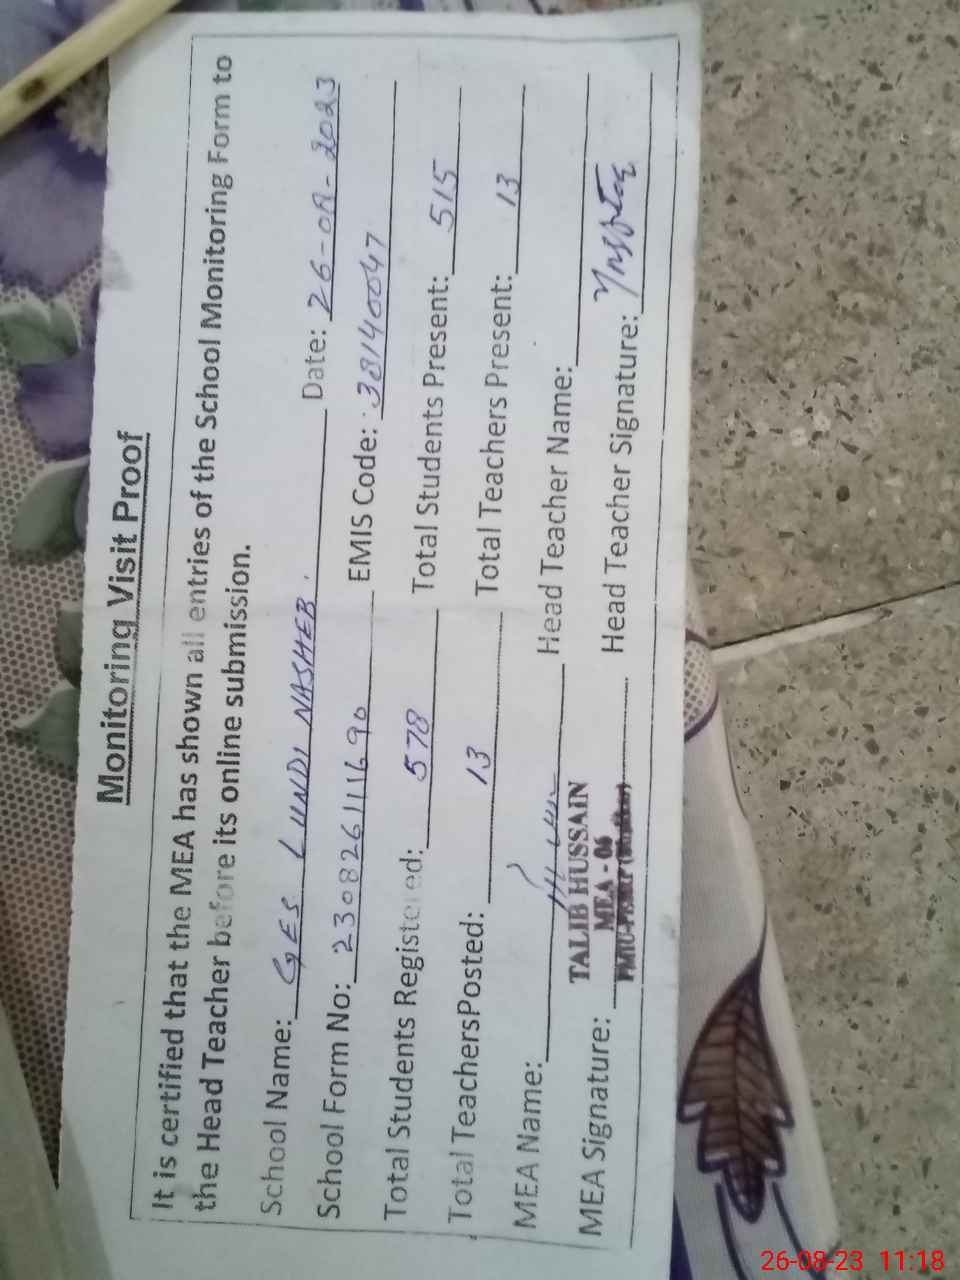 Monitoring Visit Proof
It is certified that the MEA has shown all entries of the School Monitoring Form to
the Head Teacher before its online submission.
School Name: GES LUNDI NASHEB. Date: 26-08-2023
School Form No: 230826111690 EMIS Code: 38140047
Total Students Registered: 578 Total Students Present: 515
Total TeachersPosted: 13 Total Teachers Present: 13
MEA Name: Head Teacher Name:
TALIB HUSSAIN
MEA - 06
MEA Signature: Head Teacher Signature:
26-08-23 11:18